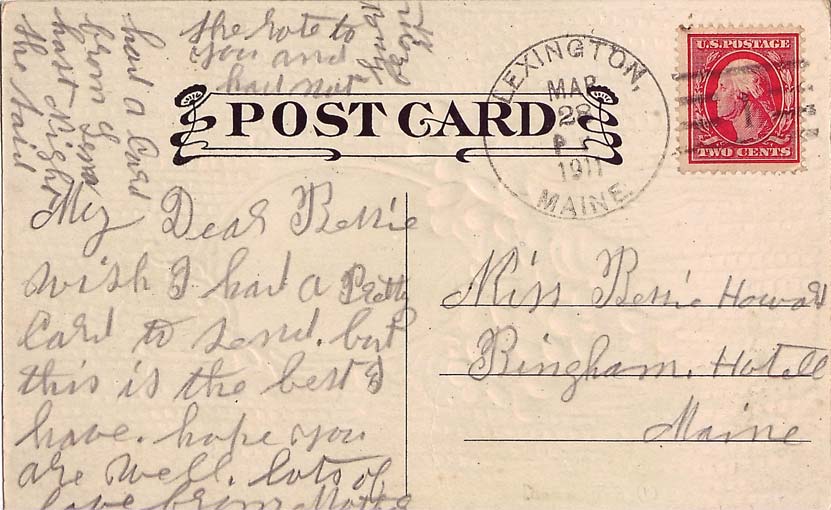 POST CARD
LEXINGTON,
MAR
28
P
1911
MAINE.
U.S. POSTAGE
TWO CENTS
My Dear Bessie
wish I had a Pretty
Card to send. but
this is the best I
have. hope you
are well. lots of
love from Mother
had a Card
from Lena
last Night
She said
She rote to
you and
had not
Miss Bessie Howard
Bingham. Hotell
Maine